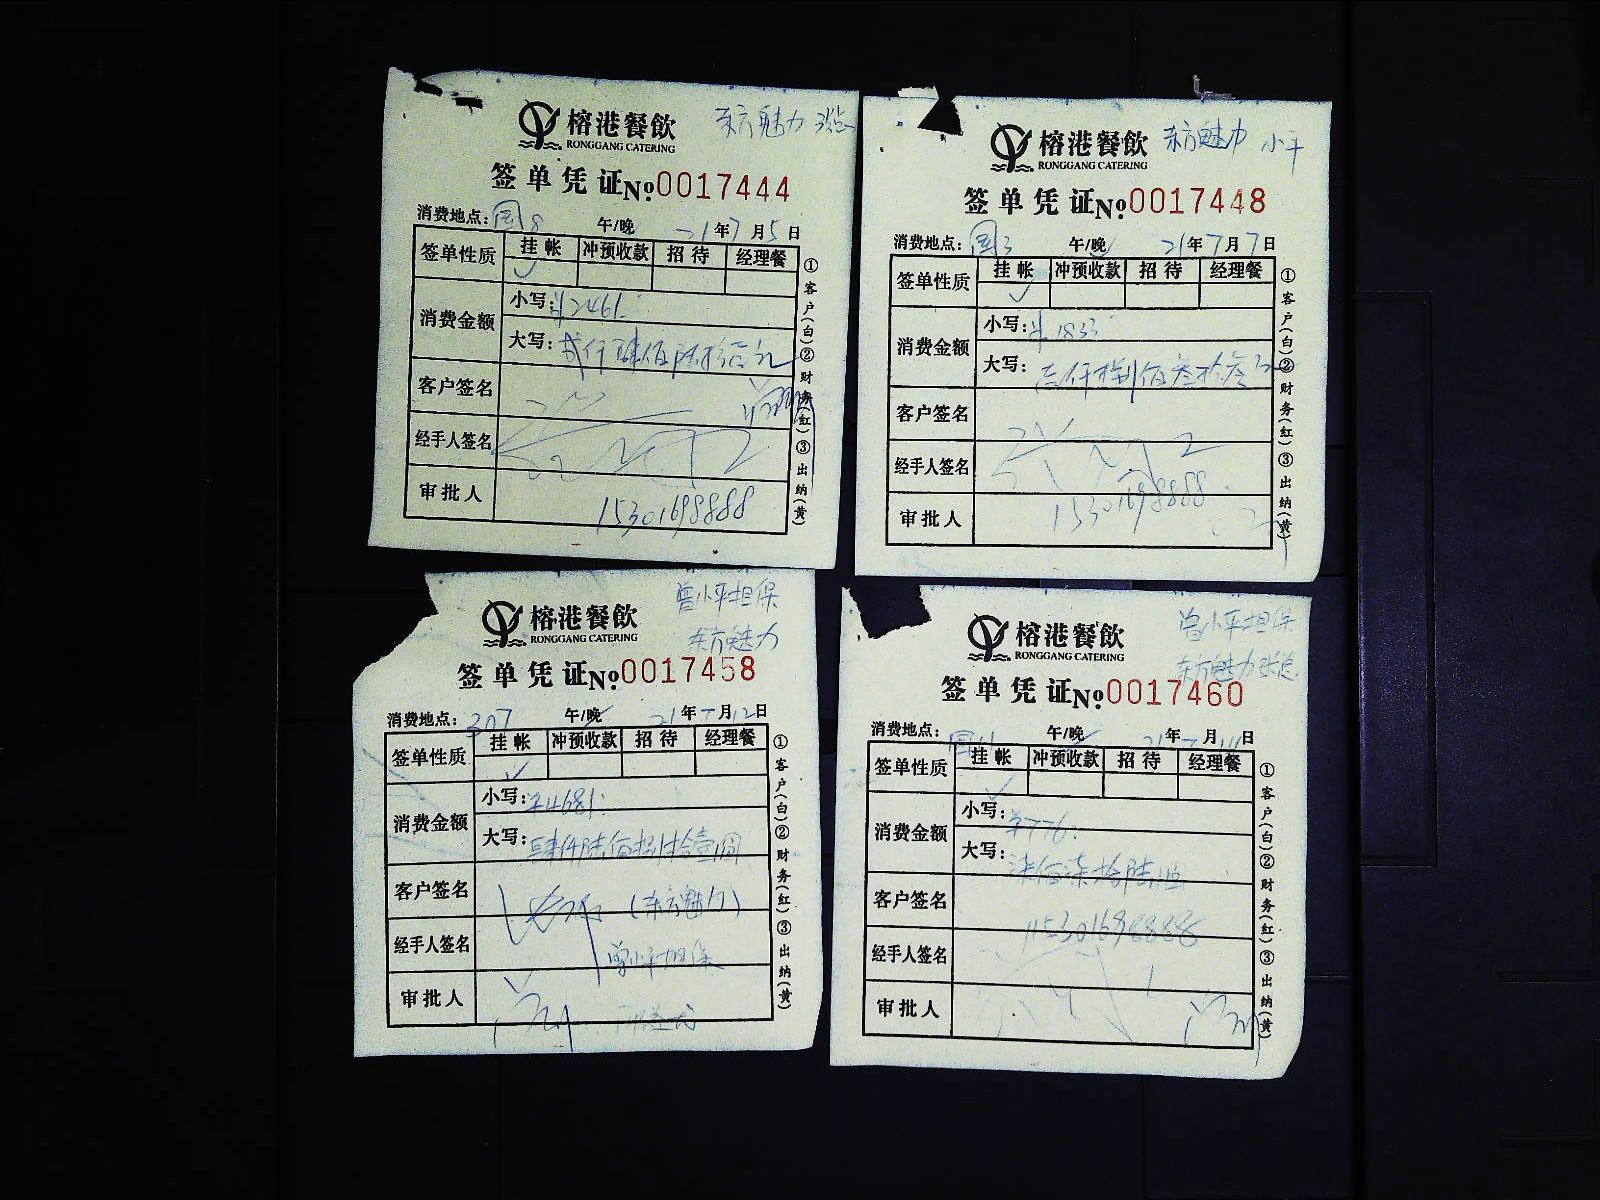 榕港餐飲
RONGGANG CATERING
东方魅力 张总
签单凭证 No: 0017444
消费地点: 国8 午/晚 21年7月5日
签单性质 挂帐 冲预收款 招待 经理餐
✓
消费金额
小写: ¥2461.
大写: 贰仟肆佰陆拾壹元
客户签名
经手人签名
审批人
15301698888
①客户(白)②财务(红)③出纳(黄)
榕港餐飲
RONGGANG CATERING
东方魅力 小平
签单凭证 No: 0017448
消费地点: 国3 午/晚 21年7月7日
签单性质 挂帐 冲预收款 招待 经理餐
✓
消费金额
小写: ¥1833
大写: 壹仟捌佰叁拾叁元
客户签名
经手人签名
15301698888
审批人
①客户(白)②财务(红)③出纳(黄)
曾小平担保
榕港餐飲
RONGGANG CATERING
东方魅力
签单凭证 No: 0017458
消费地点: 307 午/晚 21年7月12日
签单性质 挂帐 冲预收款 招待 经理餐
✓
消费金额
小写: ¥4681.
大写: 肆仟陆佰捌拾壹圆
客户签名 (东方魅力)
经手人签名 曾小平担保
审批人
①客户(白)②财务(红)③出纳(黄)
曾小平担保
榕港餐飲
RONGGANG CATERING
东方魅力 张总
签单凭证 No: 0017460
消费地点: 午/晚 21年 月 日
签单性质 挂帐 冲预收款 招待 经理餐
✓
消费金额
小写: ¥776.
大写: 柒佰柒拾陆
客户签名
15301698888
经手人签名
审批人
①客户(白)②财务(红)③出纳(黄)